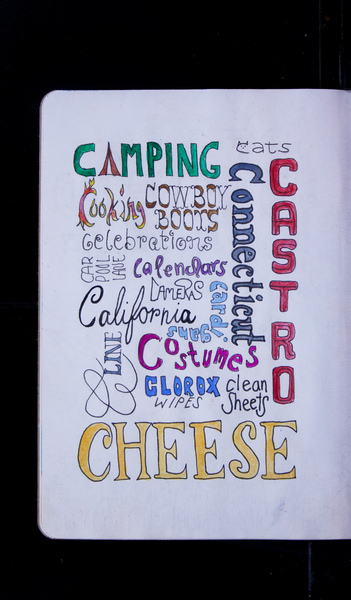 CAMPING
Cats
CASTRO
Connecticut
Cooking
COWBOY
BOOTS
Celebrations
CAR
POOL
LANE
Calendars
CAMERAS
cardi
gans
California
LINE
Costumes
CLOROX
WIPES
clean
Sheets
CHEESE